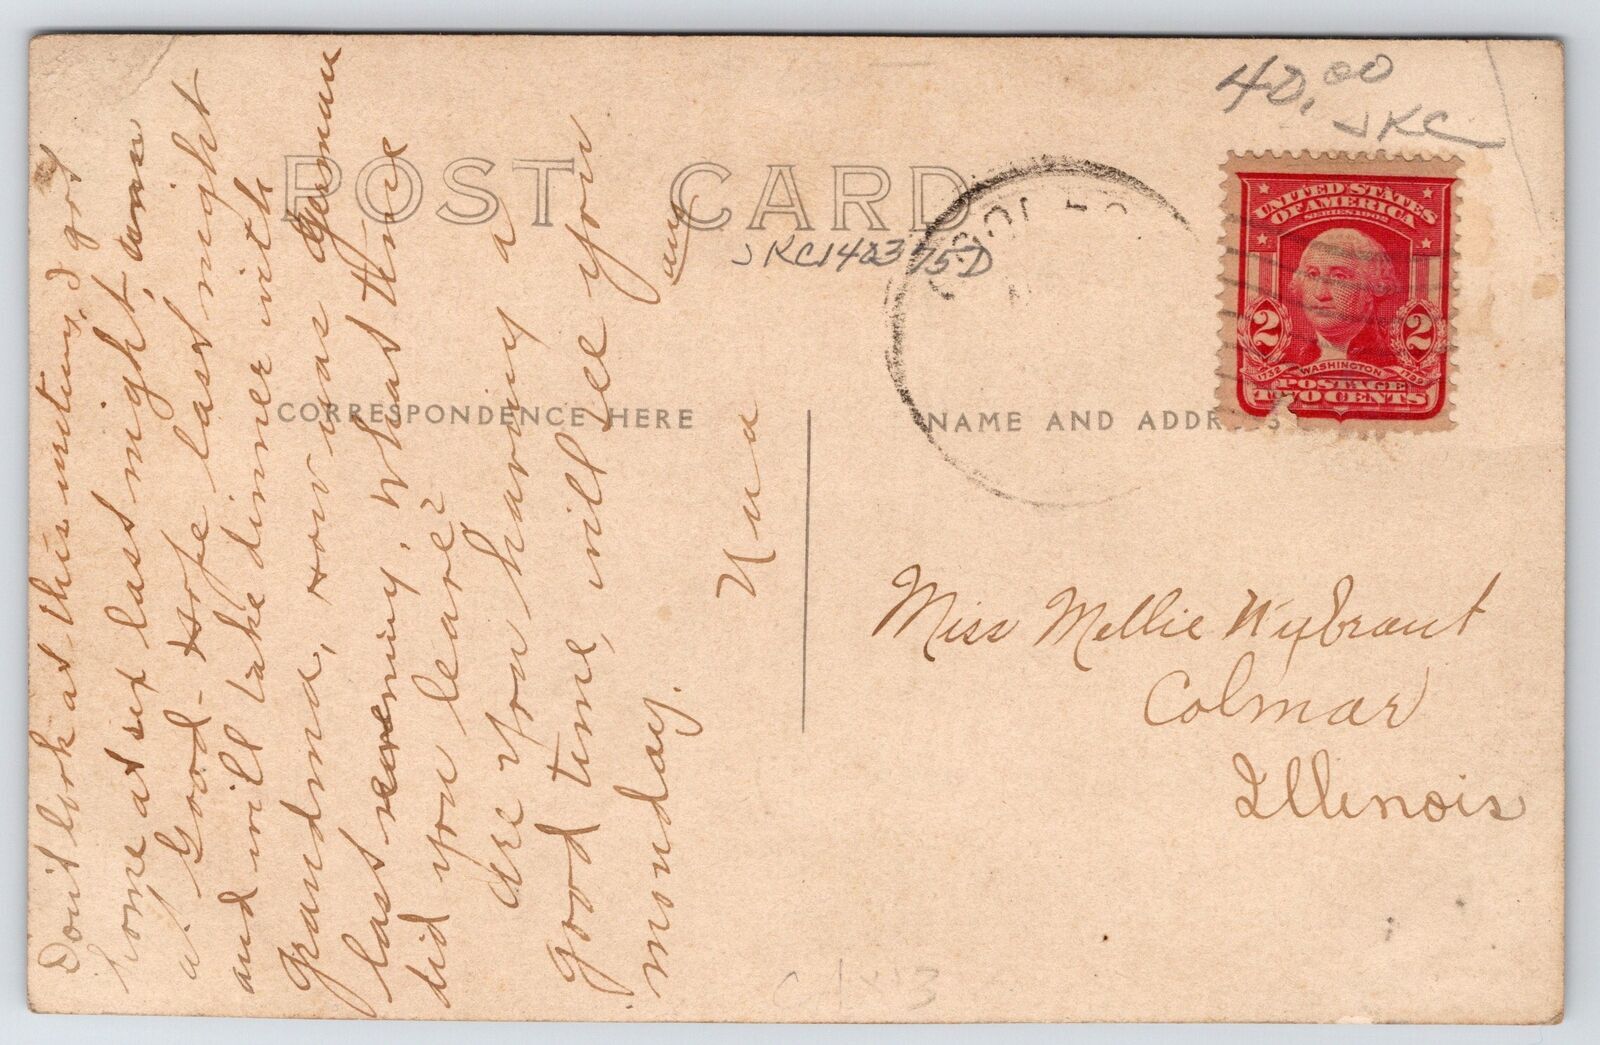 40.00
JKC
POST CARD
JKC142375D
UNITED STATES
OF AMERICA
SERIES 1902
2 2
1732 WASHINGTON 1799
POSTAGE
TWO CENTS
CORRESPONDENCE HERE
NAME AND ADDRESS
Don't look at this writing, I got
home at six last night,
at Good- last night
and will take dinner with
grandma, How was
last evening, What time
did you leave?
are you having a
good time, will see you
monday.
Miss Mellie Wybrant
Colmar
Illinois